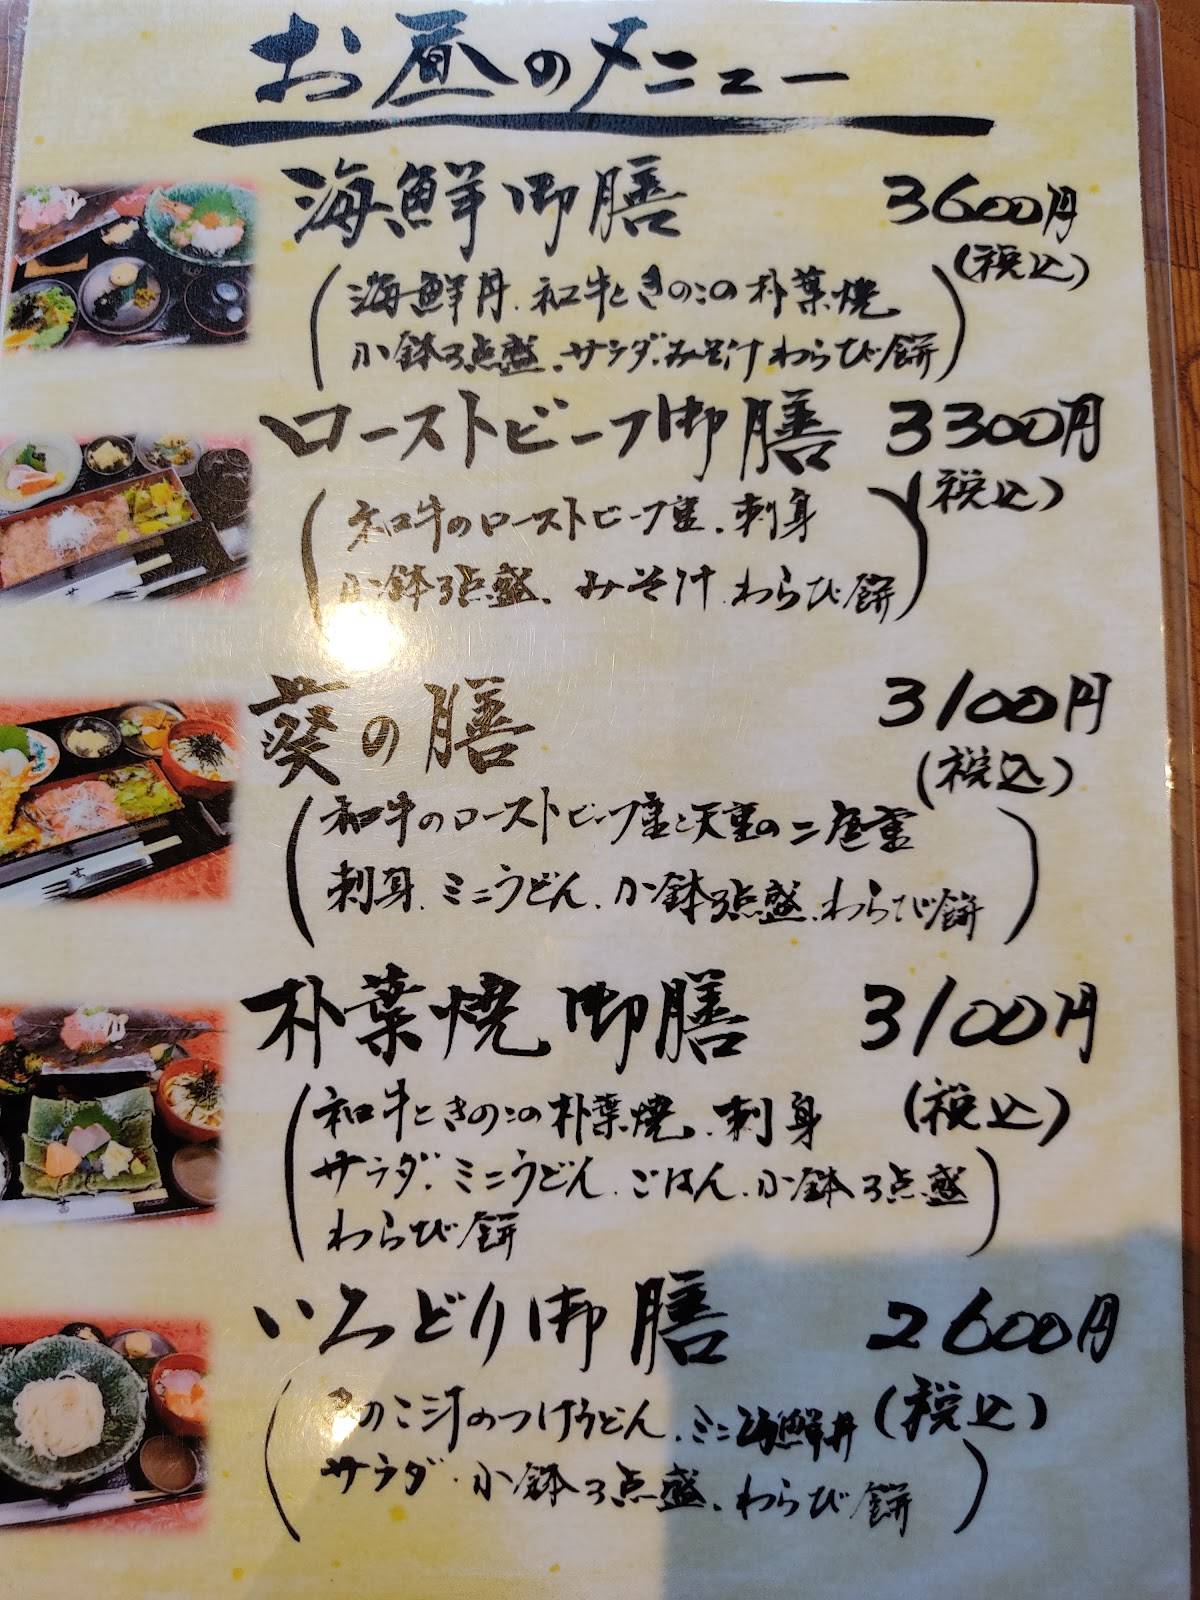 お昼のメニュー
海鮮御膳 3600円
(税込)
(海鮮丼、和牛ときのこの朴葉焼
小鉢3点盛、サラダ、みそ汁わらび餅)
ローストビーフ御膳 3300円
(税込)
(和牛のローストビーフ重、刺身
小鉢3点盛、みそ汁、わらび餅)
葵の膳 3100円
(税込)
(和牛のローストビーフ重と天重の二段重
刺身、ミニうどん、小鉢3点盛、わらび餅)
朴葉焼御膳 3100円
(和牛ときのこの朴葉焼、刺身 (税込)
サラダ、ミニうどん、ごはん、小鉢3点盛
わらび餅)
いろどり御膳 2600円
(きのこ汁のつけうどん、ミニ海鮮丼 (税込)
サラダ、小鉢3点盛、わらび餅)